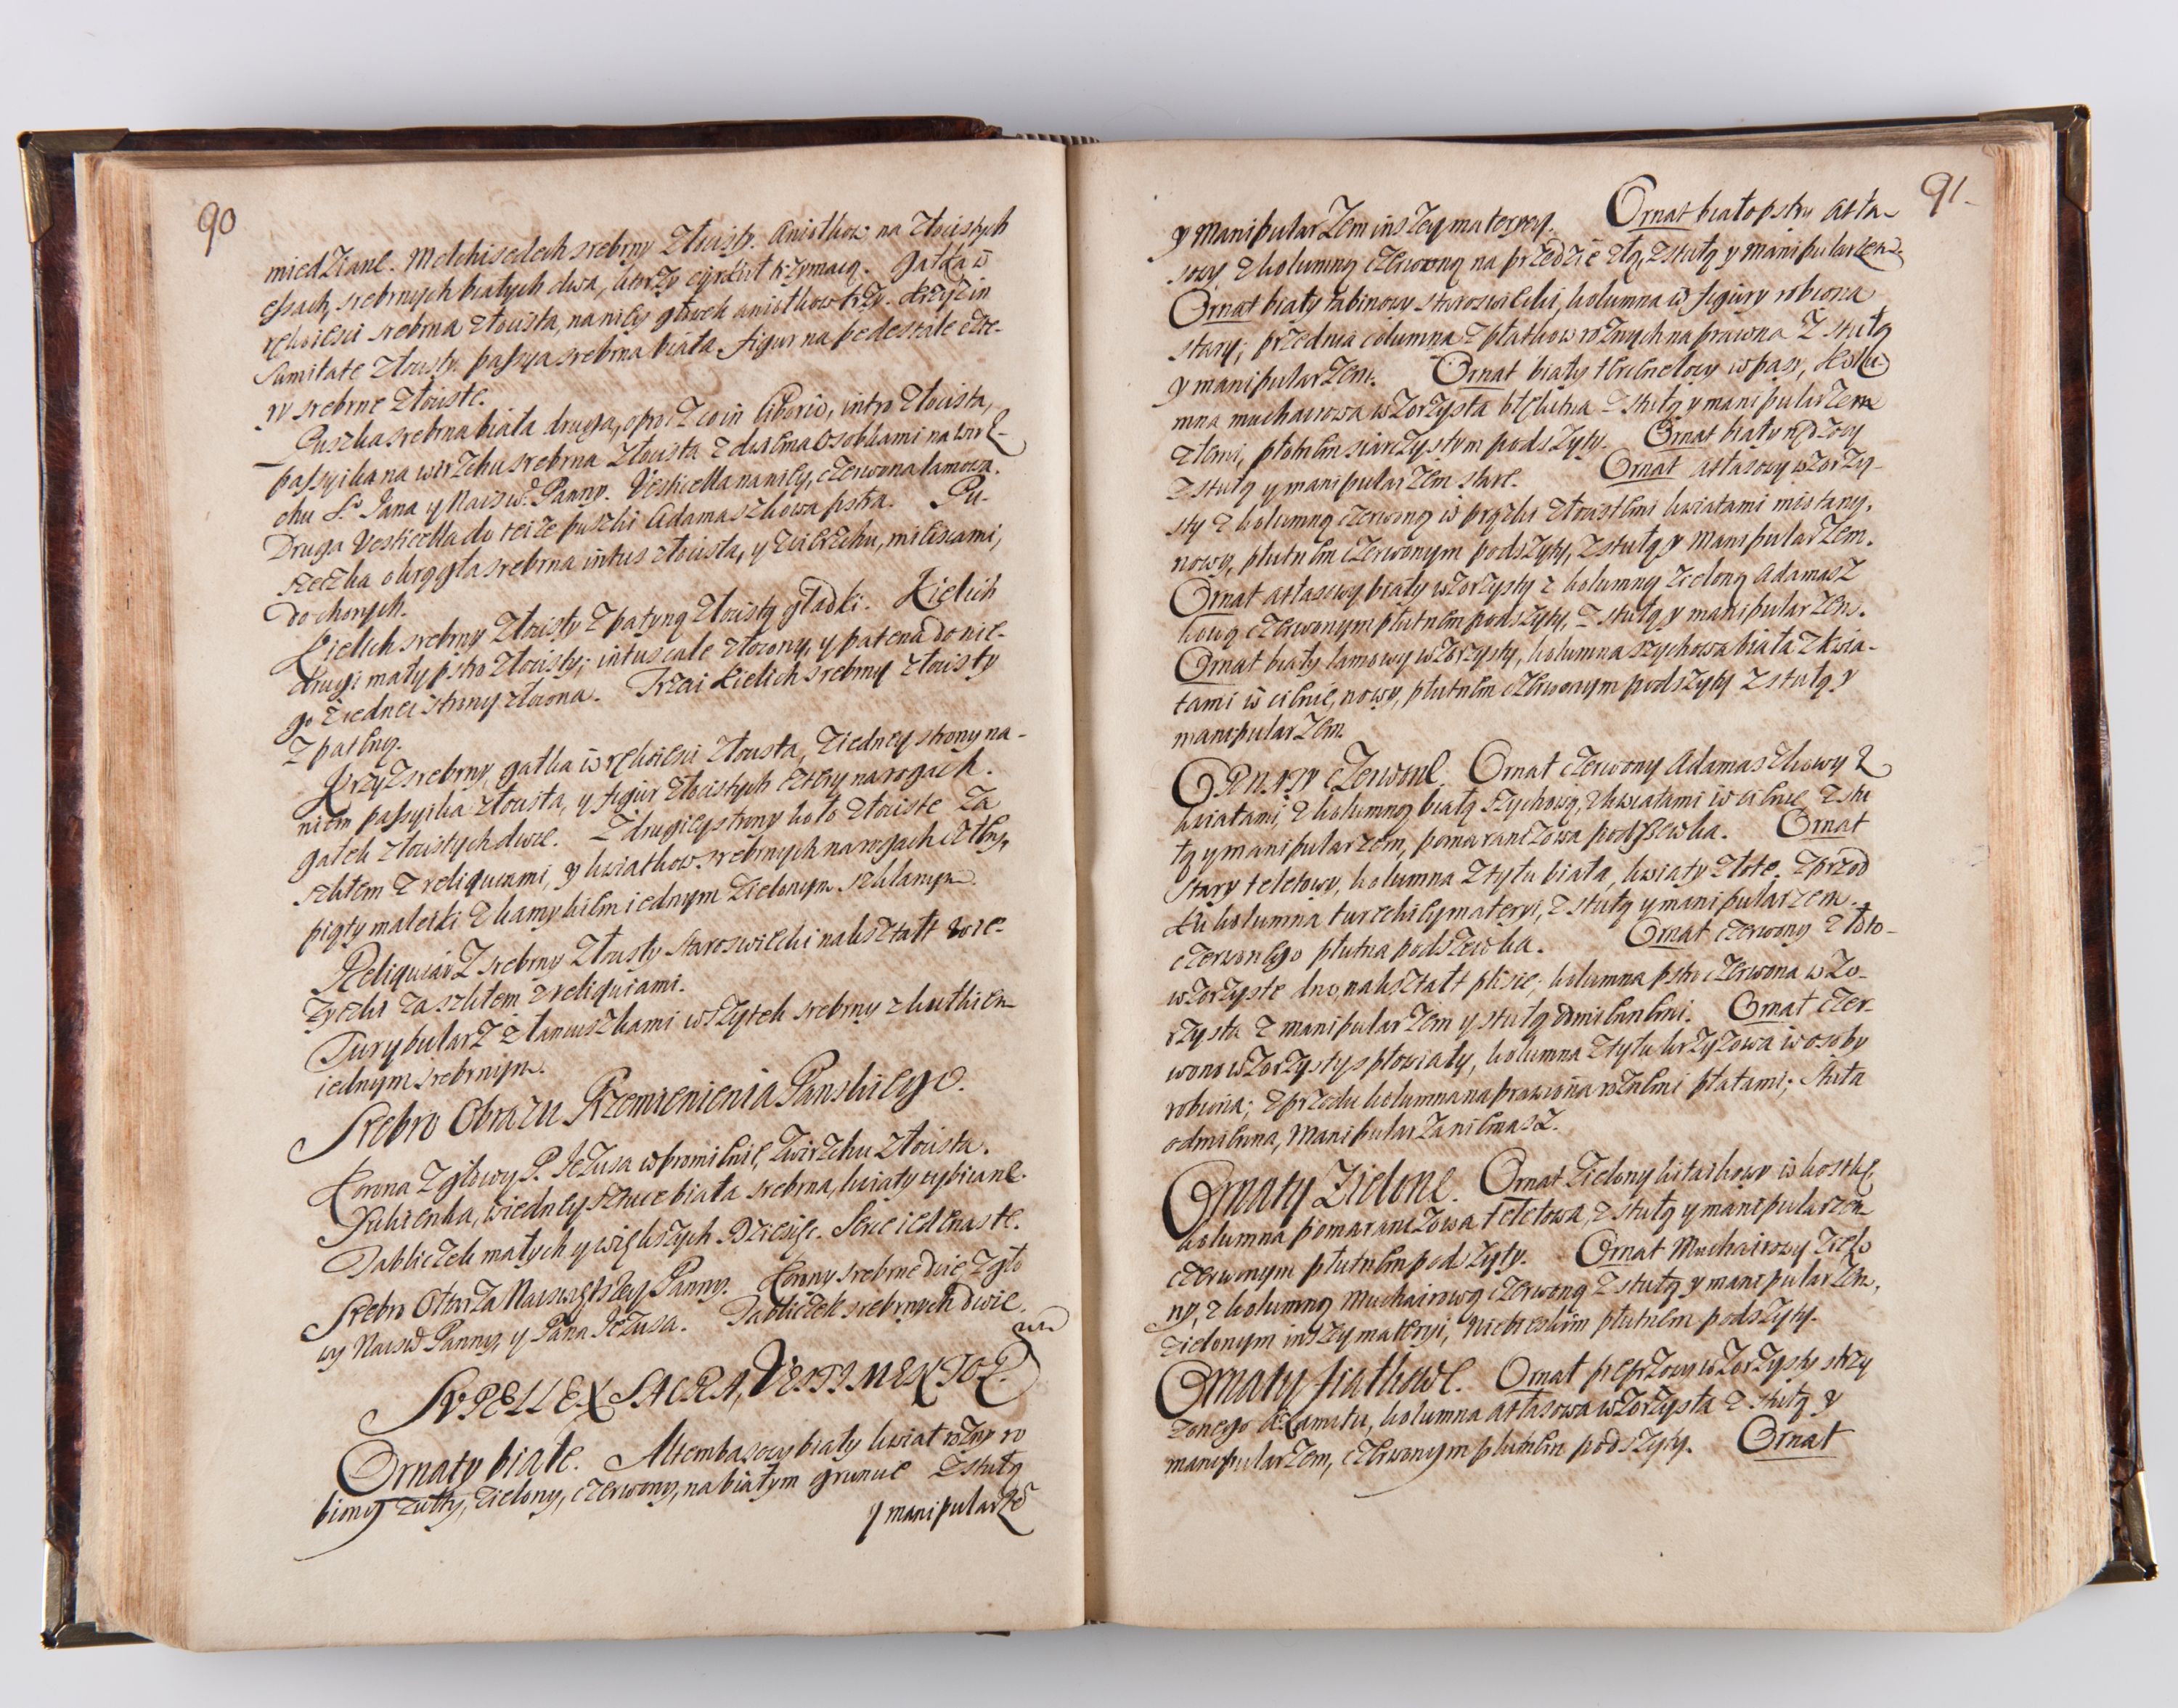 90
miedziane. Melchisedech srebrny złocisty. Aniołkow na złocistych
essach, srebrnych białych dwa, ktorzy cyrkuł trzymaią. Gałka w
rękoieści srebrna złocista, na niey głowek aniołkow trzy. Krzyż in
sumitate złocisty. passya srebrna biała. figur na pedestale czte-
ry srebrne złociste.
Puszka srebrna biała druga, oprocz co in Ciborio, intro złocista,
passyika na wirzchu srebrna złocista z dwiema osobkami na wirz-
chu S.o Jana y Naysw. Panny. Vesticella na niey, czerwona lamowa.
Druga Vesticella do teize puszki Adamaszkowa pstra. Pu-
szeczka okrągła srebrna intus złocista, y zwierzchu, mieiscami,
do chorych.
Kielich srebrny złocisty z patyną złocistą gładki. Kielich
drugi mały pstro złocisty; intus cale złocony, y patena do nie-
go z iednei strony złocona. Trzci Kielich srebrny złocisty
z pateną.
Krzyż srebrny, gałka w rękoieści złocista, z iedney strony na-
niem passyika złocista, y figur złocistych cztery na rogach.
gałek złocistych dwie. Z drugiey strony koło złociste za
szkłem z reliquiami, y kwiatkow srebrnych na rogach cztery,
piąty maleiki z kamykiem iednym zielonym szklanym.
Reliquiarz srebrny złocisty staroswiecki nakształt wie-
życzki za szkłem z reliquiami.
Turybularz z łancuszkami wszytek srebrny z kutkiem
iednym srebrnym.
Srebro Obrazu Przemienienia Panskiego.
Korona z głowy P. Jezusa w promienie, zwirzchu złocista.
Sukienka, w iedney sztuce biała srebrna, kwiaty wybiiane.
Tabliczek małych y większych dziesięć. Serce iedenaste.
Srebro Ołtarza Nayswiętszey Panny. Korony srebrne dwie z gło
wy Naysw Panny, y Pana Jezusa. Tabliczek srebrnych dwie.
SUPELLEX SACRA, VESTIMENTOR
um
Ornaty białe. Altembasowy biały kwiat rożny ro
biony żułty, zielony, czerwony, na białym gruncie z stułą
y manipularzē
91.
y Manipularzem inszey materyey. Ornat białopstry Atła-
sowy z kolumną czerwoną na przedzie złą, z stułą y manipularzem.
Ornat biały tabinowy staroswiecki, kolumna w figury robiona
stary; przednia columna z płatkow rożnych naprawna z stułą
y manipularzem. Ornat biały tercynelowy w pasy, kolu-
mna muchairowa wzorzysta błękitna z stułą y manipularzem
złemi, płotnem siarczystym podszyty. Ornat biały rądzowy
z stułą y manipularzem stare. Ornat atłasowy wzorzy-
sty z kolumną czerwoną w prążki złocistemi kwiatami mistany,
nowy, płutnem czerwonym podszyty, z stułą y Manipularzem.
Ornat atłasowy biały wzorzysty z kolumną zieloną Adamasz
kową czerwonym płutnem podszyty, z stułą y manipularzem.
Ornat biały lamowy wzorzysty, kolumna szychowa biała z kwia-
tami w cienie, nowy, płutnem czerwonym podszyty z stułą y
manipularzem.
Ornaty Czerwone. Ornat czerwony Adamaszkowy z
kwiatami, z kolumną białą szychową, z kwiatami w cienie z stu
łą y manipularzem, pomaranczowa podszewka. Ornat
stary teletowy, kolumna z tyłu biała, kwiaty złote, z przod
ku kolumna tureckiey materyi, z stułą y manipularzem.
czerwonego płutna podszewka. Ornat czerwony złoto-
wzorzyste dno, nakształt plisie, kolumna pstro czerwona wzo-
rzysta z manipularzem y stułą odmiennemi. Ornat czer-
wono wzorzysty spłowiały, kolumna z tyłu krzyżowa w osoby
robiona; z przodu kolumna naprawiona rożnemi płatami; stuła
odmienna, Manipularza niemasz.
Ornaty Zielone. Ornat Zielony kitaikowy w kostkę,
kolumna pomaranczowa teletowa, z stułą y manipularzem
czerwonym płutnem podszyty. Ornat Muchairowy zielo
ny, z kolumną Muchairową czerwoną z stułą y manipularzem,
zielonym inszey materyi, niebieskim płutnem podszyty.
Ornaty fiałkowe. Ornat pieprzowy wzorzysty strzy
żonego Axamitu, kolumna atłasowa wzorzysta z stułą y
manipularzem, czerwonym płutnem podszyty. Ornat